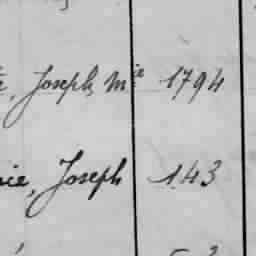 , Joseph Mie 1794
nie, Joseph 143